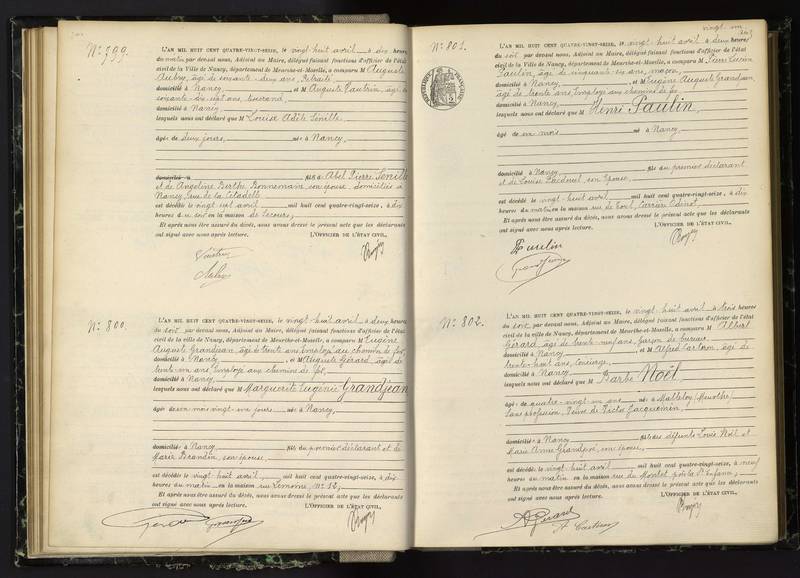 N° 799.
L'AN MIL HUIT CENT QUATRE-VINGT-SEIZE, le vingt huit avril à dix heures
du matin par devant nous, Adjoint au Maire, délégué faisant fonctions d'officier de l'état
civil de la Ville de Nancy, département de Meurthe-et-Moselle, a comparu M Auguste
Aubry, âgé de soixante-deux ans, retraité
domicilié à Nancy, et M Auguste Vautrin, âgé de
soixante-dix-sept ans,
domicilié à Nancy
lesquels nous ont déclaré que M Louise Adèle Senille
âgée de deux jours, née à Nancy,
domiciliée à fille d'Abel Pierre Senille
et de Angeline Berthe Bonnemain son épouse, domiciliés à
Nancy, rue de la Citadelle
est décédée le vingt sept avril, mil huit cent quatre-vingt-seize, à dix
heures du soir en la maison de Secours,
Et après nous être assuré du décès, nous avons dressé le présent acte que les déclarants
ont signé avec nous après lecture. L'OFFICIER DE L'ÉTAT CIVIL,
N° 800.
L'AN MIL HUIT CENT QUATRE-VINGT-SEIZE, le vingt-huit avril à deux heures
du soir par devant nous, Adjoint au Maire, délégué faisant fonctions d'officier de l'état
civil de la ville de Nancy, département de Meurthe-et-Moselle, a comparu M Eugène
Auguste Grandjean âgé de trente ans Employé au chemin de fer,
domicilié à Nancy, et M Auguste Gérard, âgé de
trente-un ans, Employé aux chemins de fer,
domicilié à Nancy,
lesquels nous ont déclaré que M Marguerite Eugénie Grandjean
âgée de six mois vingt-un jours née à Nancy,
domiciliée à Nancy fille du premier déclarant et de
Marie Brandin, son épouse,
est décédée le vingt huit avril, mil huit cent quatre-vingt-seize, à dix
heures du matin en la maison rue Lemoine, N° 12,
Et après nous être assuré du décès, nous avons dressé le présent acte que les déclarants
ont signé avec nous après lecture. L'OFFICIER DE L'ÉTAT CIVIL,
vingt un
N° 801.
L'AN MIL HUIT CENT QUATRE-VINGT-SEIZE, le vingt-huit avril à deux heures
du soir par devant nous, Adjoint au Maire, délégué faisant fonctions d'officier de l'état
civil de la Ville de Nancy, département de Meurthe-et-Moselle, a comparu M Pierre Lucien
Paulin, âgé de cinquante-six ans, maçon,
domicilié à Nancy et M Eugène Auguste Grandjean
âgé de trente ans, Employé aux chemins de fer
domicilié à Nancy
lesquels nous ont déclaré que M Henri Paulin
âgé de six mois né à Nancy,
domicilié à Nancy, fils du premier déclarant
et de Louise son épouse,
est décédé le vingt-huit avril mil huit cent quatre-vingt-seize, à dix
heures du matin en la maison rue de Toul, Carrière
Et après nous être assuré du décès, nous avons dressé le présent acte que les déclarants
ont signé avec nous après lecture. L'OFFICIER DE L'ÉTAT CIVIL,
Paulin
N° 802.
L'AN MIL HUIT CENT QUATRE-VINGT-SEIZE, le vingt-huit avril à trois heures
du soir par devant nous, Adjoint au Maire, délégué faisant fonctions d'officier de l'état
civil de la ville de Nancy, département de Meurthe-et-Moselle, a comparu M Albert
Gérard, âgé de trente-neuf ans, garçon de bureau,
domicilié à Nancy et M Alfred âgé de
trente-huit ans, concierge,
domicilié à Nancy,
lesquels nous ont déclaré que M Barbe Noël,
âgée de quatre-vingt-un ans née à Malleloy (Meurthe)
Sans profession, Veuve de Victor Jacquemin,
domiciliée à Nancy fille des défunts Louis Noël et
Marie Anne son épouse,
est décédée le vingt huit avril mil huit cent quatre-vingt-seize, à neuf
heures du matin en la maison rue du Montet
Et après nous être assuré du décès, nous avons dressé le présent acte que les déclarants
ont signé avec nous après lecture. L'OFFICIER DE L'ÉTAT CIVIL,
A Gérard